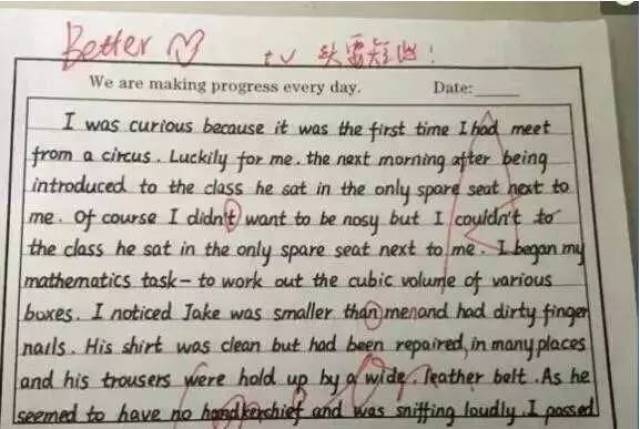 Better tv 头短些!
We are making progress every day. Date:
I was curious because it was the first time I had meet
from a circus. Luckily for me. the next morning after being
introduced to the class he sat in the only spare seat next to
me. Of course I didn't want to be nosy but I couldn't to
the class he sat in the only spare seat next to me. I began my
mathematics task- to work out the cubic volume of various
boxes. I noticed Jake was smaller than me and had dirty finger
nails. His shirt was clean but had been repaired, in many places
and his trousers were hold up by a wide. leather belt. As he
seemed to have no handkerchief and was sniffing loudly. I passed